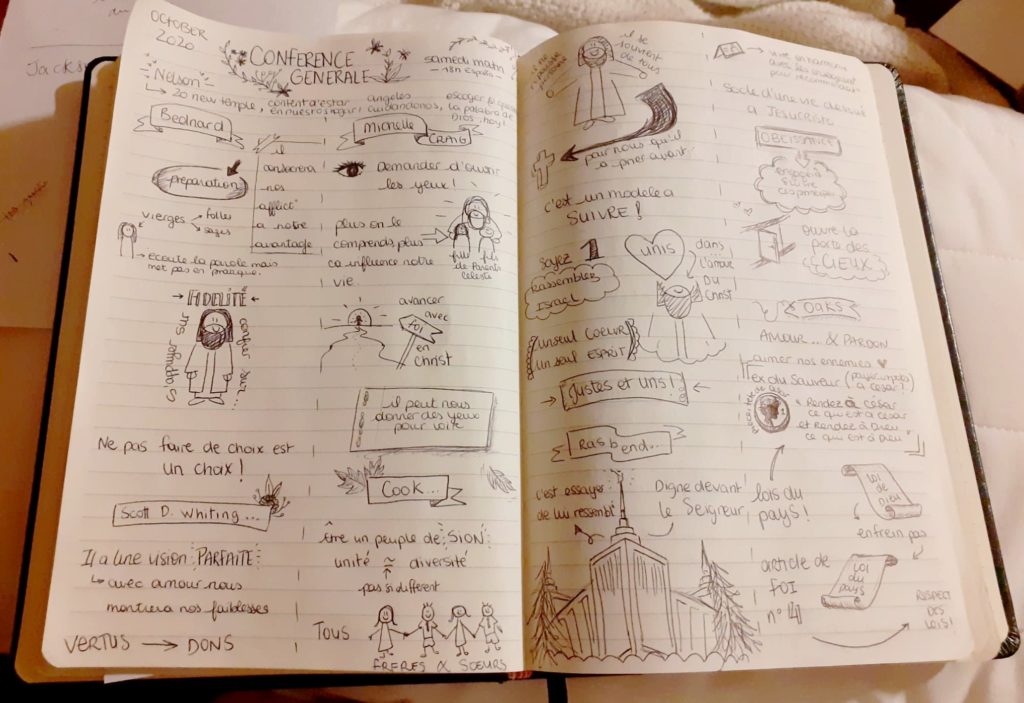 OCTOBER
2020
CONFERENCE
GENERALE
samedi matin
18h España
Nelson
20 new temple, contenta d'estar
en nuestro hogar,
angeles
cuidandonos,
la palabra de
Dios, hoy!
Bednard
il
consacrera
nos
afflict°
a notre
avantage
préparation
vierges
folles
sages
écoute la parole mais
met pas en pratique.
FIDELITÉ
Ne pas faire de choix est
un choix!
Scott D. Whiting...
Il a une vision PARFAITE
avec amour nous
montrera nos faiblesses
VERTUS → DONS
Michelle
CRAIG
Demander d'ouvrir
les yeux!
plus on le
comprends plus
ca influence notre
vie.
fille fils
de Parents
celeste
avancer
avec
FOI
en
Christ
il peut nous
donner des yeux
pour voir
Cook...
être un peuple de SION
unité ≈ diversité
pas si différent
Tous
FRERES & SOEURS
il se
souvient
de tous
pour nous qu'il
a
c'est un modele a
SUIVRE!
Soyez 1
Rassemblez
Israel
unis
dans
l'amour
Du
Christ
un seul COEUR
un seul ESPRIT
Justes et uns!
Rasband...
c'est essayer
de lui ressemblé
Digne devant
le Seigneur
vivre en harmonie
avec
pour
Socle d'une vie devoué
a JESUCRISTE
OBEISSANCE
engagé a
suivre
ouvre la
porte des
CIEUX
OAKS
AMOUR... & PARDON
aimer nos ennemies
ex du Sauveur (payer impots
a césar!)
Rendez à césar
ce qui est a césar
et Rendez à Dieu
ce qui est à Dieu
lois du
pays!
LOI
de
Dieu
enfrein pas
LOI
du
pays
article de
FOI
RESPECT
DES
LOIS!